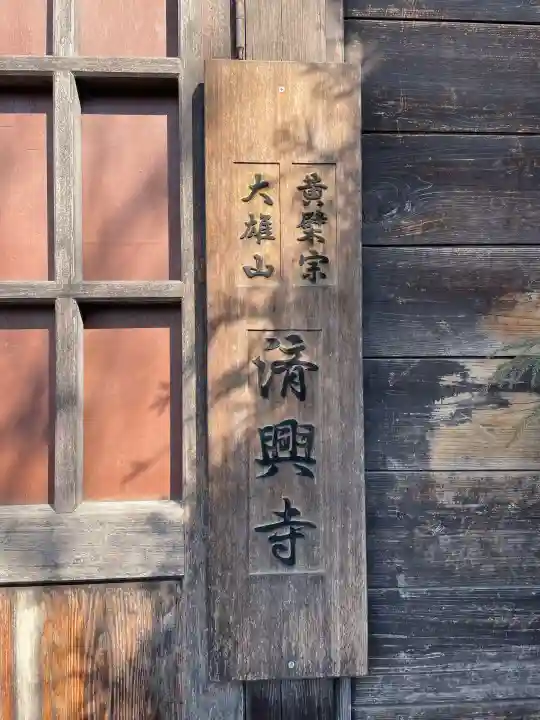 黄檗宗
大雄山
済興寺